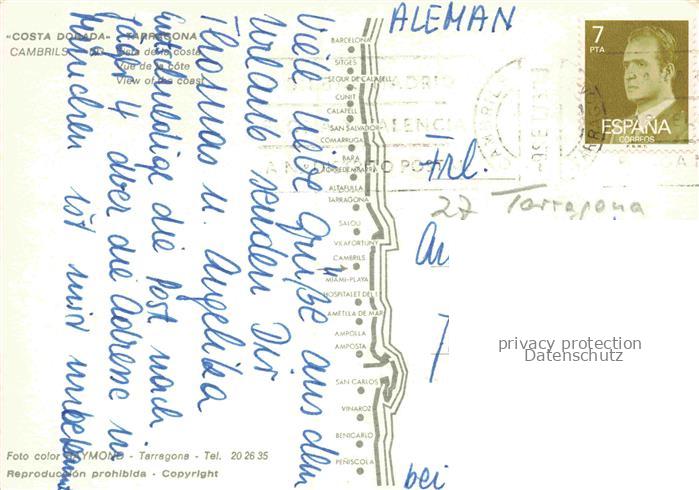 «COSTA DORADA» - TARRAGONA
CAMBRILS
Vista de la costa
Vue de la côte
View of the coast
Viele liebe Grüße aus dem
Urlaub senden Dir
Thomas u. Angelika
die Post nach
4 aber die Adresse in
München ist mir unbekannt
Foto color RAYMOND - Tarragona - Tel. 20 26 35
Reproducción prohibida - Copyright
BARCELONA
SITGES
SEGUR DE CALAFELL
CUNIT
CALAFELL
SAN SALVADOR
COMARRUGA
BARA
TORREDEMBARRA
ALTAFULLA
TARRAGONA
SALOU
VILAFORTUNY
CAMBRILS
MIAMI-PLAYA
HOSPITALET DEL I.
AMETLLA DE MAR
AMPOLLA
AMPOSTA
SAN CARLOS
VINAROZ
BENICARLO
PEÑISCOLA
ALEMAN
7
PTA
ESPAÑA
CORREOS
Frl.
27 Tarragona
bei
privacy protection
Datenschutz